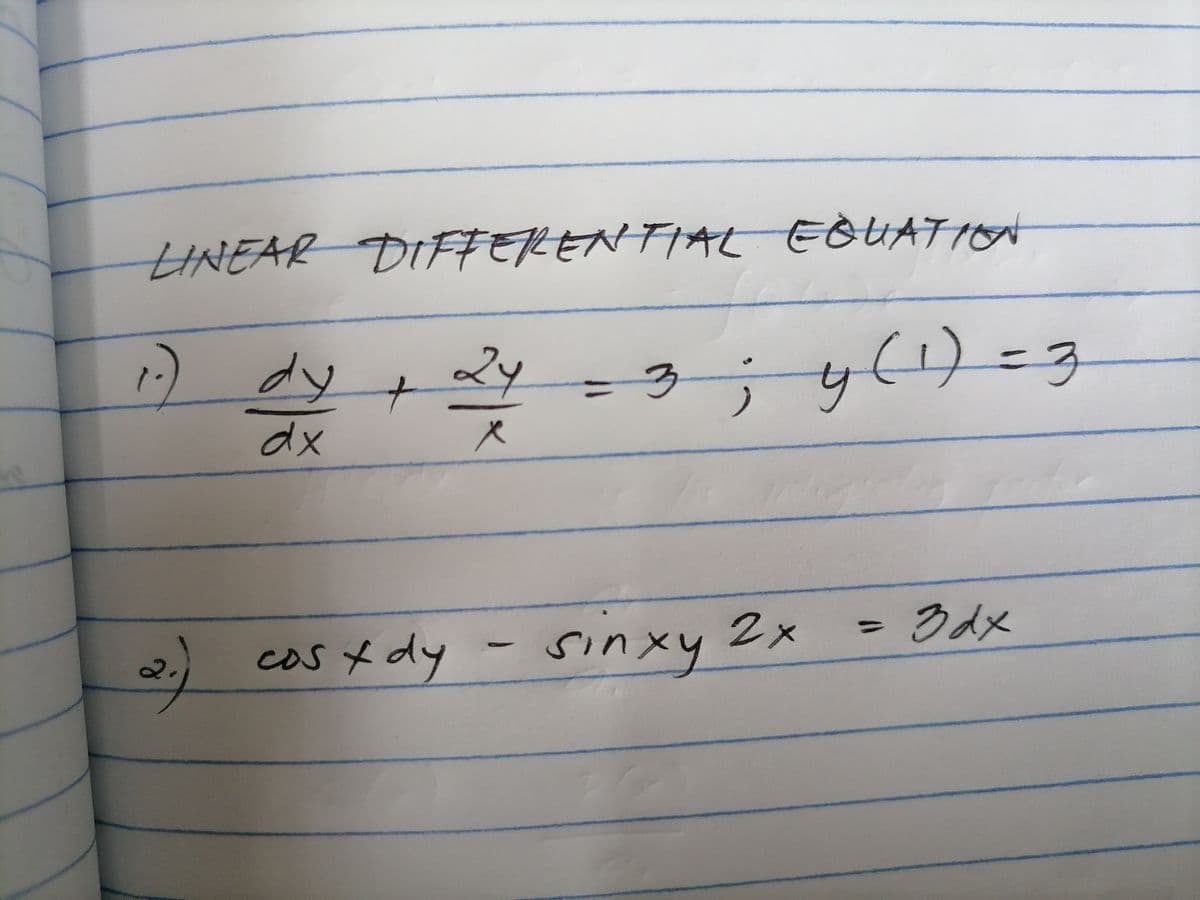 LINEAR DIFFERENTIAL EQUATION
1.) dy/dx + 2y/x = 3 ; y(1) = 3
2.) cos x dy - sin xy 2x = 3dx